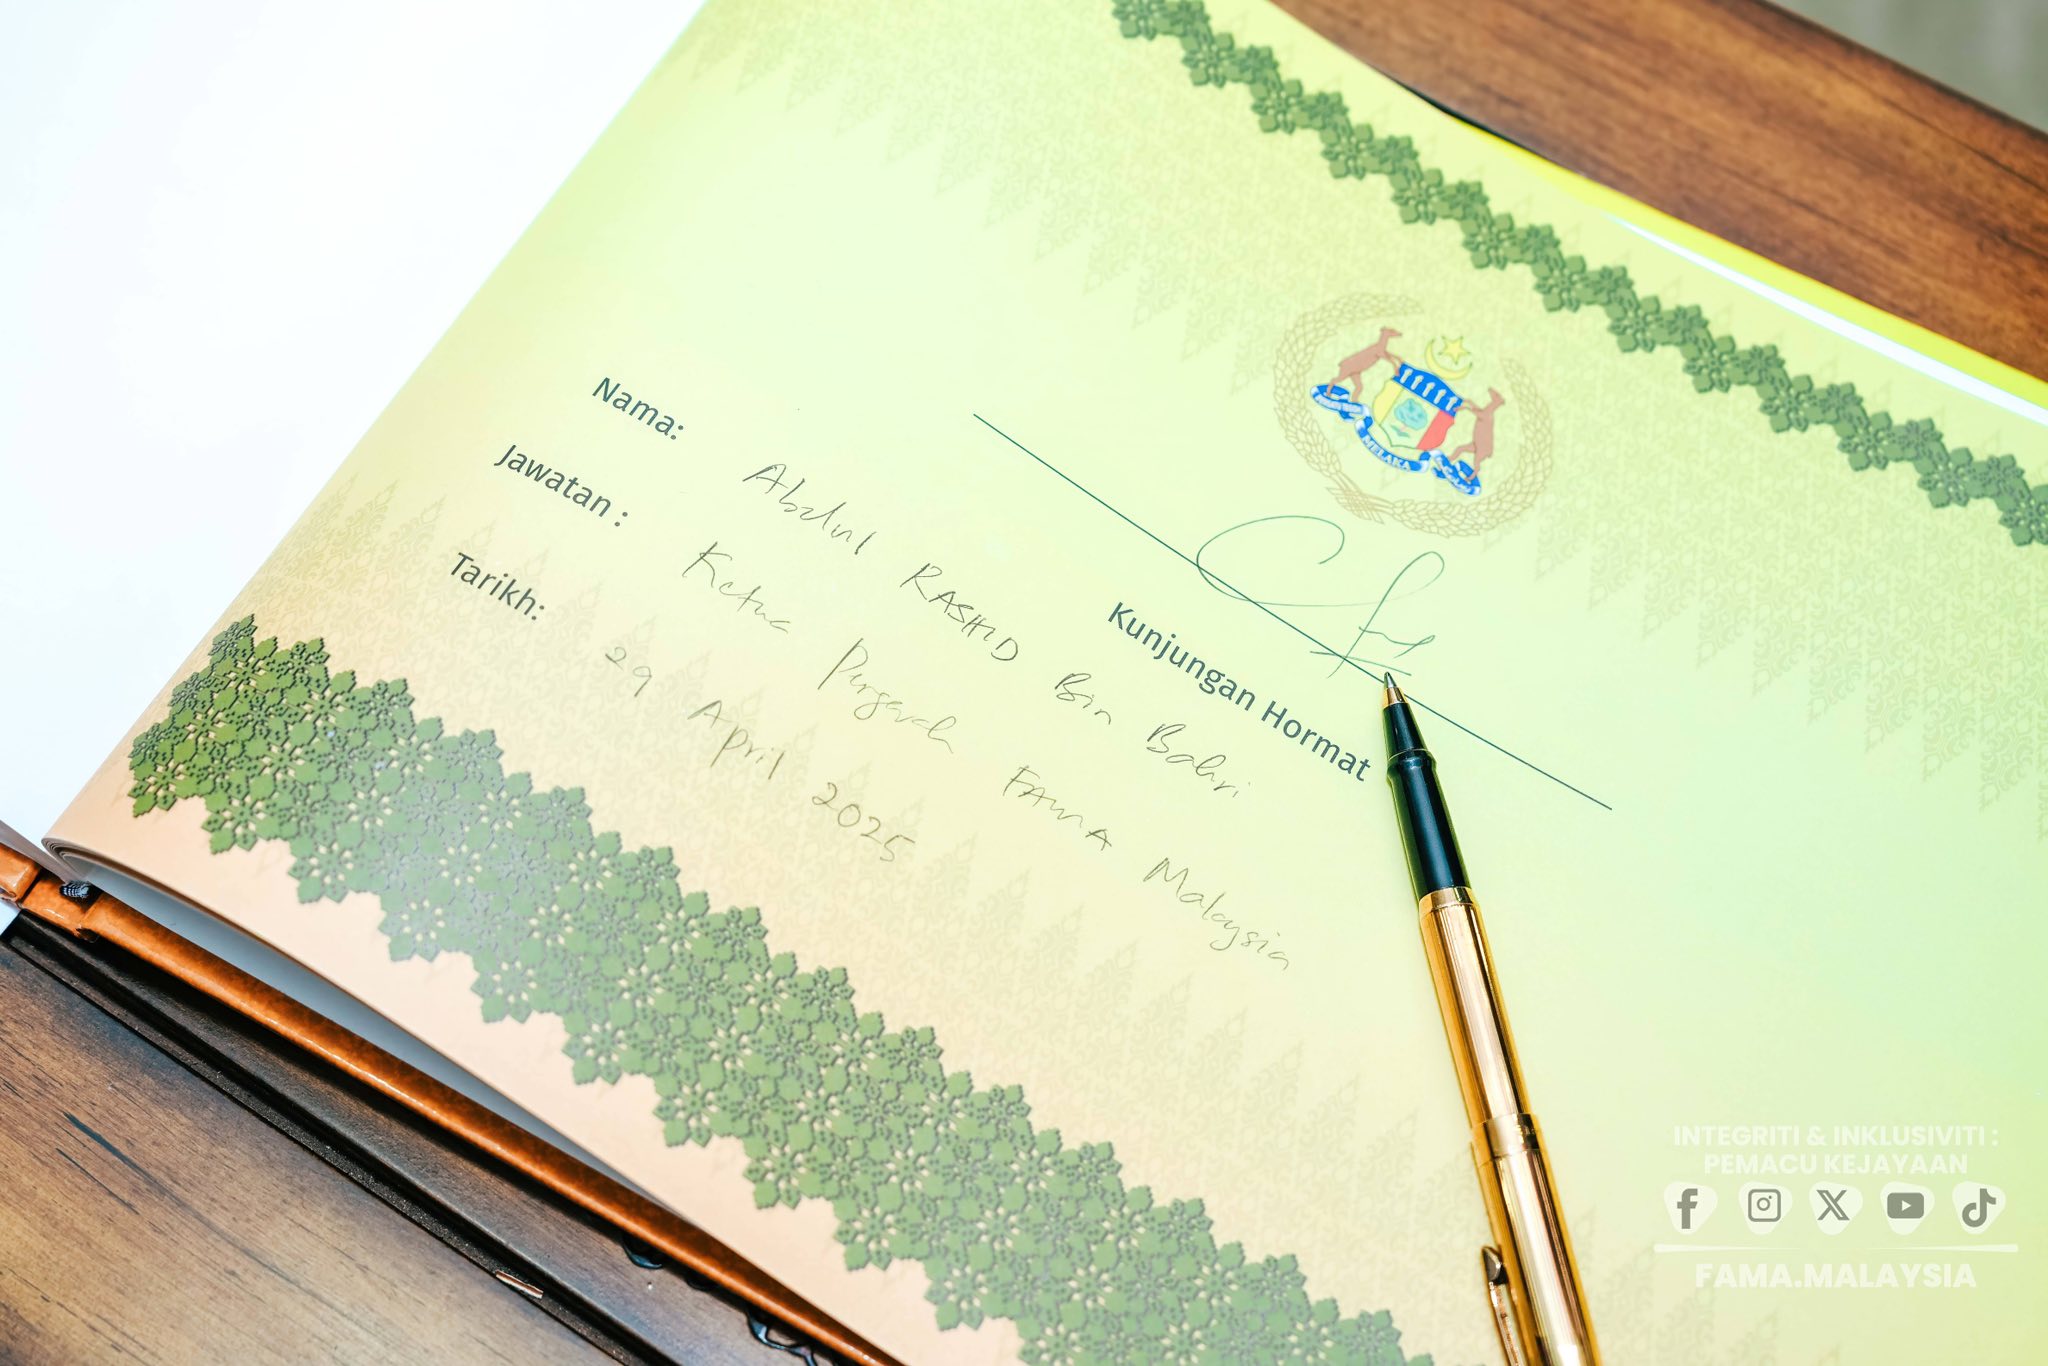 MELAKA
Kunjungan Hormat
Nama: Abdul RASHID Bin Bahri
Jawatan : Ketua Pengarah FAMA Malaysia
Tarikh: 29 April 2025
INTEGRITI & INKLUSIVITI :
PEMACU KEJAYAAN
FAMA.MALAYSIA